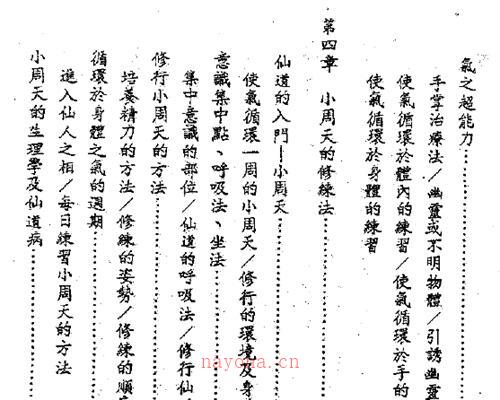 氣之超能力
手掌治療法/幽靈或不明物體/引誘幽靈
使氣循環於體內的練習/使氣循環於手的
使氣循環於身體的練習
第四章 小周天的修練法
仙道的入門—小周天
使氣循環一周的小周天/修行的環境及身
意識集中點、呼吸法、坐法
集中意識的部位/仙道的呼吸法/修行仙
修行小周天的方法
培養精力的方法/修練的姿勢/修練的順
循環於身體之氣的週期
進入仙人之相/每日練習小周天的方法
小周天的生理學及仙道病
nayona.cn